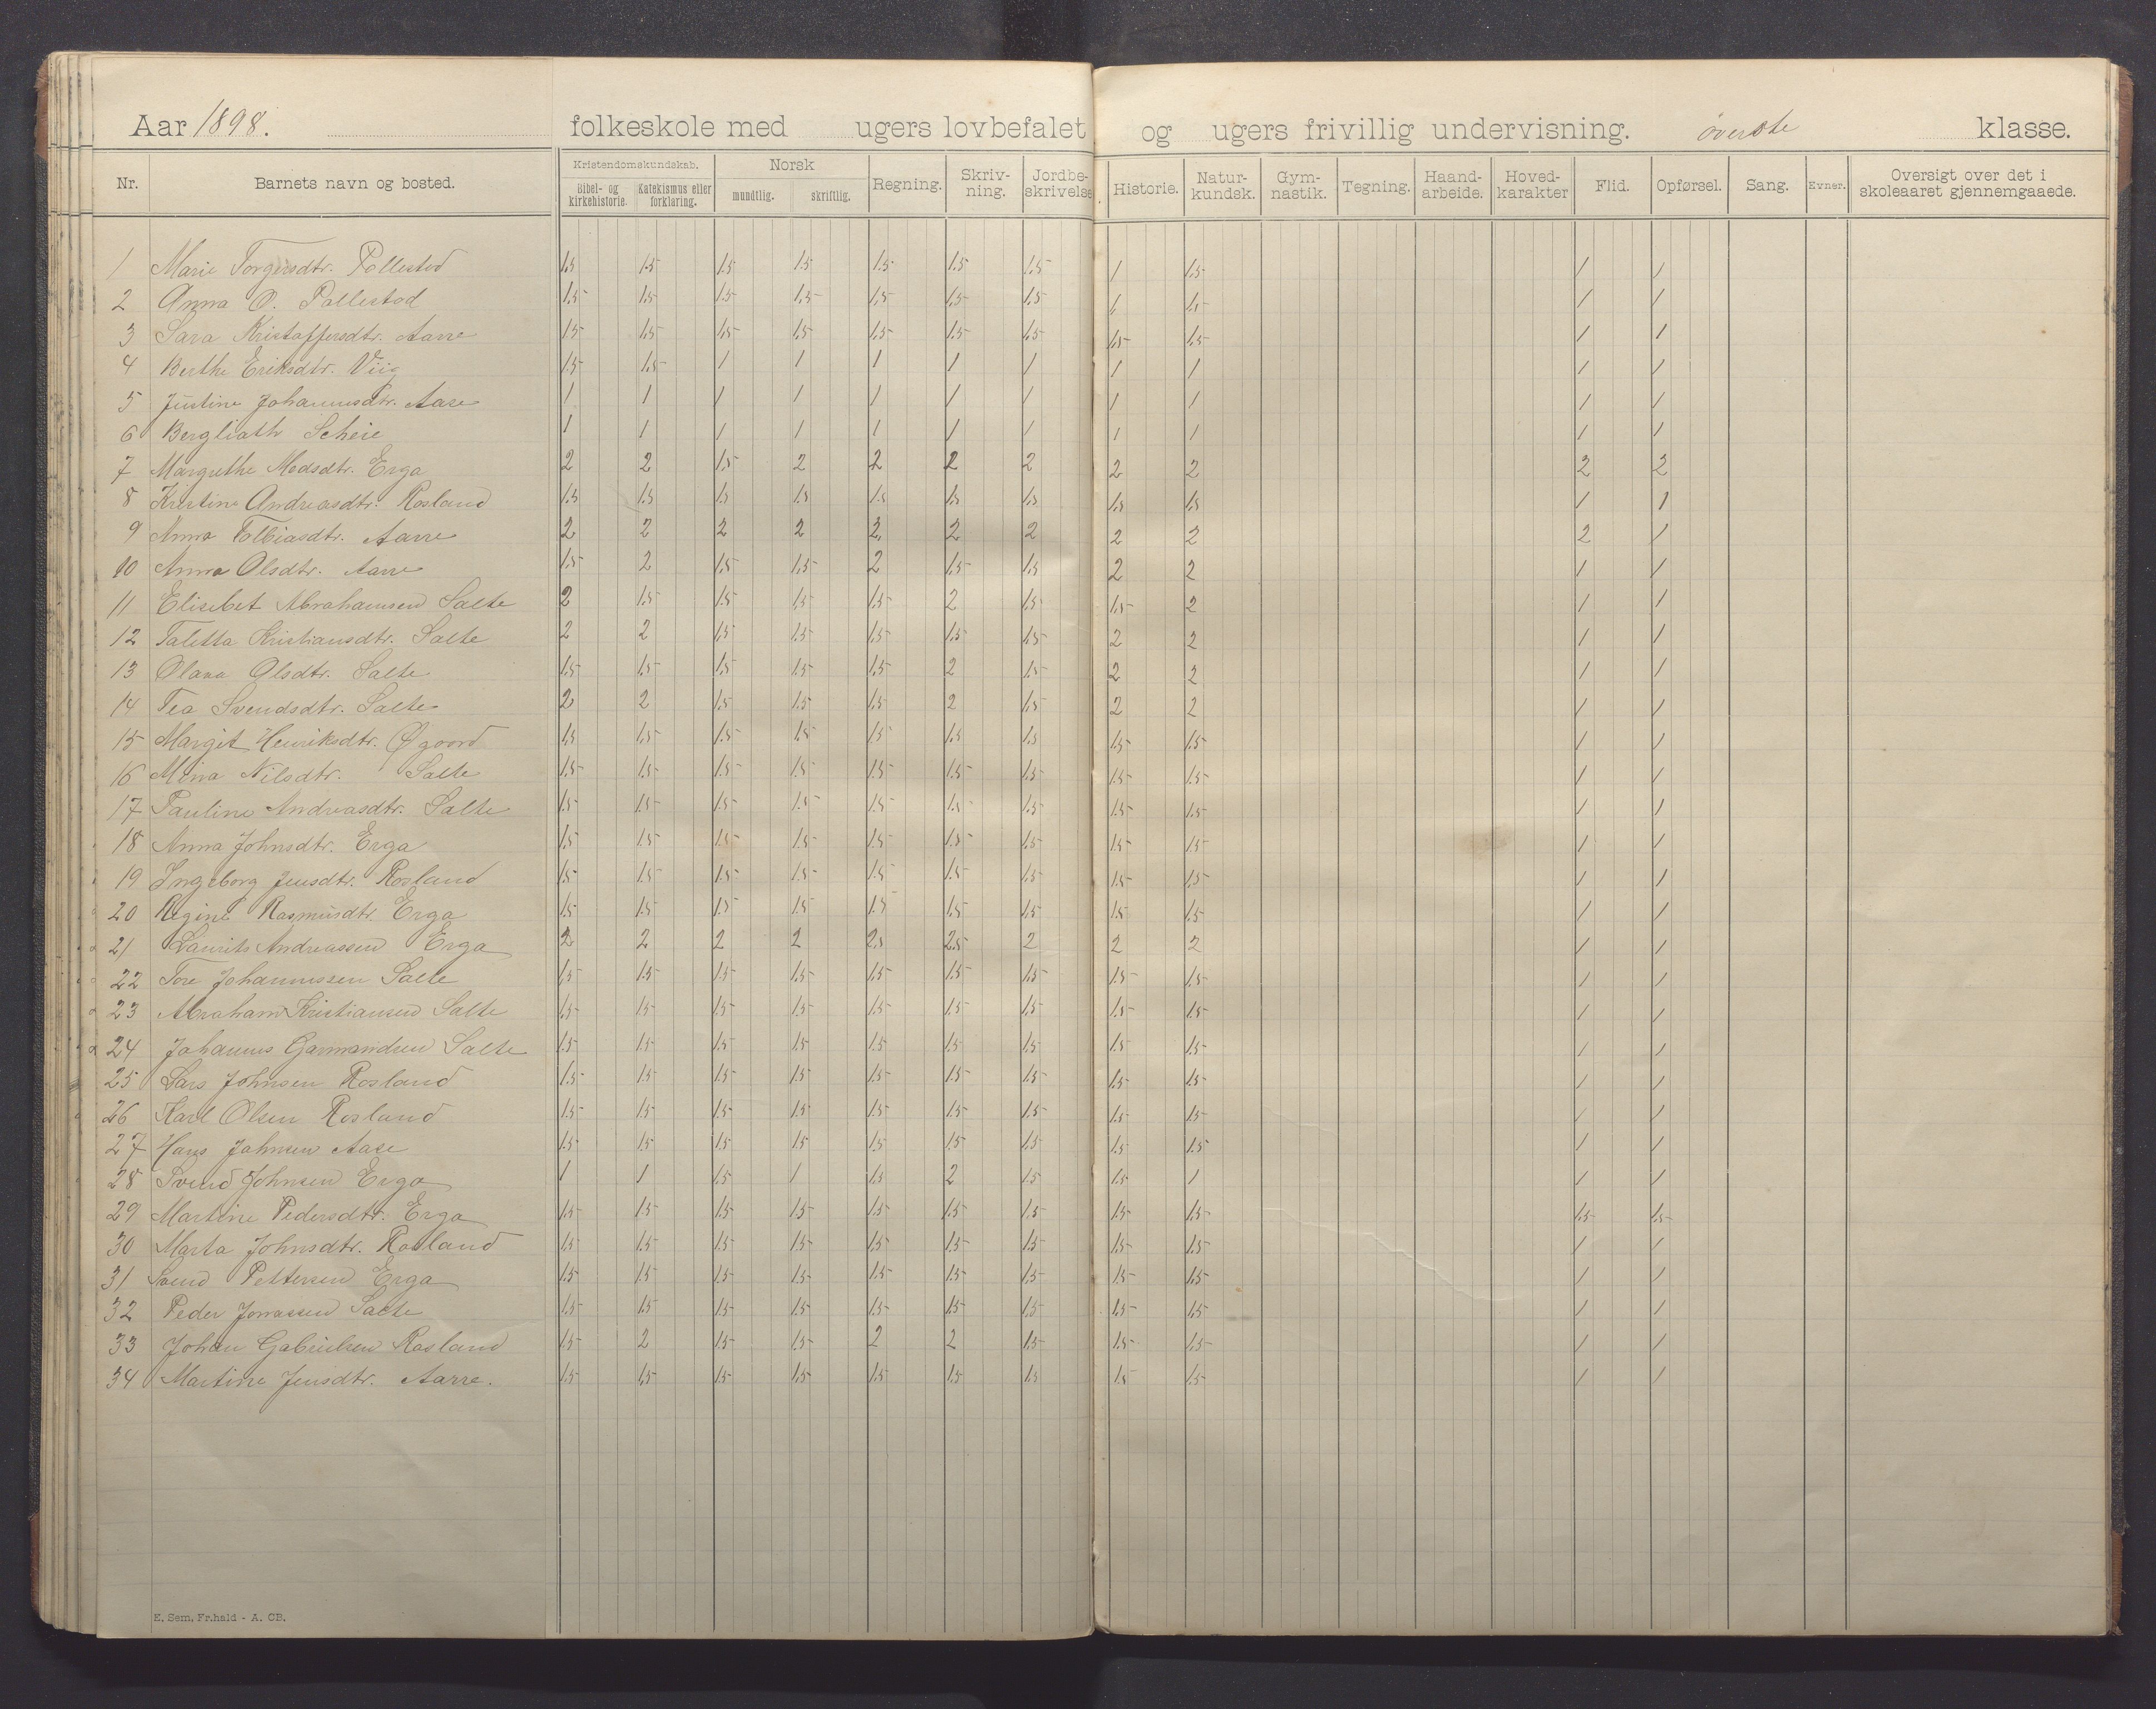 Aar 1898. folkeskole med ugers lovbefalet og ugers frivillig undervisning. överste klasse.
Nr. Barnets navn og bosted. Kristendomskundskab. Bibel- og kirkehistorie. Katekismus eller forklaring. Norsk mundtlig. skriftlig. Regning. Skriv-ning. Jordbe-skrivelse Historie. Natur-kundsk. Gym-nastik. Tegning. Haand-arbeide. Hoved-karakter Flid. Opførsel. Sang. Evner. Oversigt over det i skoleaaret gjennemgaaede.
1 Marie Torgersdtr. Pollestod 1.5 1.5 1.5 1.5 1.5 1.5 1.5 1 1.5 1 1
2 Anna O. Pollestod 1.5 1.5 1.5 1.5 1.5 1.5 1.5 1 1.5 1 1
3 Sara Kristoffersdtr. Aarre 1.5 1.5 1.5 1.5 1.5 1.5 1.5 1.5 1.5 1 1
4 Berthe Eriksdtr. Viig 1.5 1.5 1 1 1 1 1 1 1 1 1
5 Justine Johannesdtr. Aase 1 1 1 1 1 1 1 1 1 1 1
6 Bergliath Scheie 1 1 1 1 1 1 1 1 1 1 1
7 Margrethe Madsdtr. Erga 2 2 1.5 2 2 2 2 2 2 2 2
8 Kristine Andreasdtr. Rosland 1.5 1.5 1.5 1.5 1.5 1.5 1.5 1.5 1.5 1 1
9 Anna Tobiasdtr. Aarre 2 2 2 2 2 2 2 2 2 2 1
10 Anna Olsdtr. Aarre 1.5 2 1.5 1.5 2 1.5 1.5 2 2 1 1
11 Elisebet Abrahamsen Salte 2 1.5 1.5 1.5 1.5 2 1.5 1.5 2 1 1
12 Taletta Kristiansdtr. Salte 2 2 1.5 1.5 1.5 1.5 1.5 2 2 1 1
13 Olava Olsdtr. Salte 1.5 1.5 1.5 1.5 1.5 2 1.5 2 2 1 1
14 Tea Svendsdtr. Salte 2 2 1.5 1.5 1.5 2 1.5 2 2 1 1
15 Margit Henriksdtr. Øgaard 1.5 1.5 1.5 1.5 1.5 1.5 1.5 1.5 1.5 1 1
16 Mina Nilsdtr. Salte 1.5 1.5 1.5 1.5 1.5 1.5 1.5 1.5 1.5 1 1
17 Pauline Andreasdtr. Salte 1.5 1.5 1.5 1.5 1.5 1.5 1.5 1.5 1.5 1 1
18 Anna Johnsdtr. Erga 1.5 1.5 1.5 1.5 1.5 1.5 1.5 1.5 1.5 1 1
19 Ingeborg Jensdtr. Rosland 1.5 1.5 1.5 1.5 1.5 1.5 1.5 1.5 1.5 1 1
20 Regine Rasmusdtr. Erga 1.5 1.5 1.5 1.5 1.5 1.5 1.5 1.5 1.5 1 1
21 Laurits Andreassen Erga 2 2 2 2 2.5 2.5 2 2 2 1 1
22 Tore Johannessen Salte 1.5 1.5 1.5 1.5 1.5 1.5 1.5 1.5 1.5 1 1
23 Abraham Kristiansen Salte 1.5 1.5 1.5 1.5 1.5 1.5 1.5 1.5 1.5 1 1
24 Johannes Garmandsen Salte 1.5 1.5 1.5 1.5 1.5 1.5 1.5 1.5 1.5 1 1
25 Lars Johnsen Rosland 1.5 1.5 1.5 1.5 1.5 1.5 1.5 1.5 1.5 1 1
26 Karl Olsen Rosland 1.5 1.5 1.5 1.5 1.5 1.5 1.5 1.5 1.5 1 1
27 Hans Johnsen Aase 1.5 1.5 1.5 1.5 1.5 1.5 1.5 1.5 1.5 1 1
28 Svend Johnsen Erga 1 1 1.5 1 1.5 2 1.5 1.5 1 1 1
29 Martine Pedersdtr. Erga 1.5 1.5 1.5 1.5 1.5 1.5 1.5 1.5 1.5 1.5 1.5
30 Marta Johnsdtr. Rosland 1.5 1.5 1.5 1.5 1.5 1.5 1.5 1.5 1.5 1 1
31 Svend Pettersen Erga 1.5 1.5 1.5 1.5 1.5 1.5 1.5 1.5 1.5 1 1
32 Peder Jonassen Salte 1.5 1.5 1.5 1.5 1.5 1.5 1.5 1.5 1.5 1 1
33 Johan Gabrielsen Rosland 1.5 2 1.5 1.5 2 2 1.5 1.5 1.5 1 1
34 Martine Jensdtr. Aarre. 1.5 1.5 1.5 1.5 1.5 1.5 1.5 1.5 1.5 1 1
E. Sem, Fr.hald - A. CB.